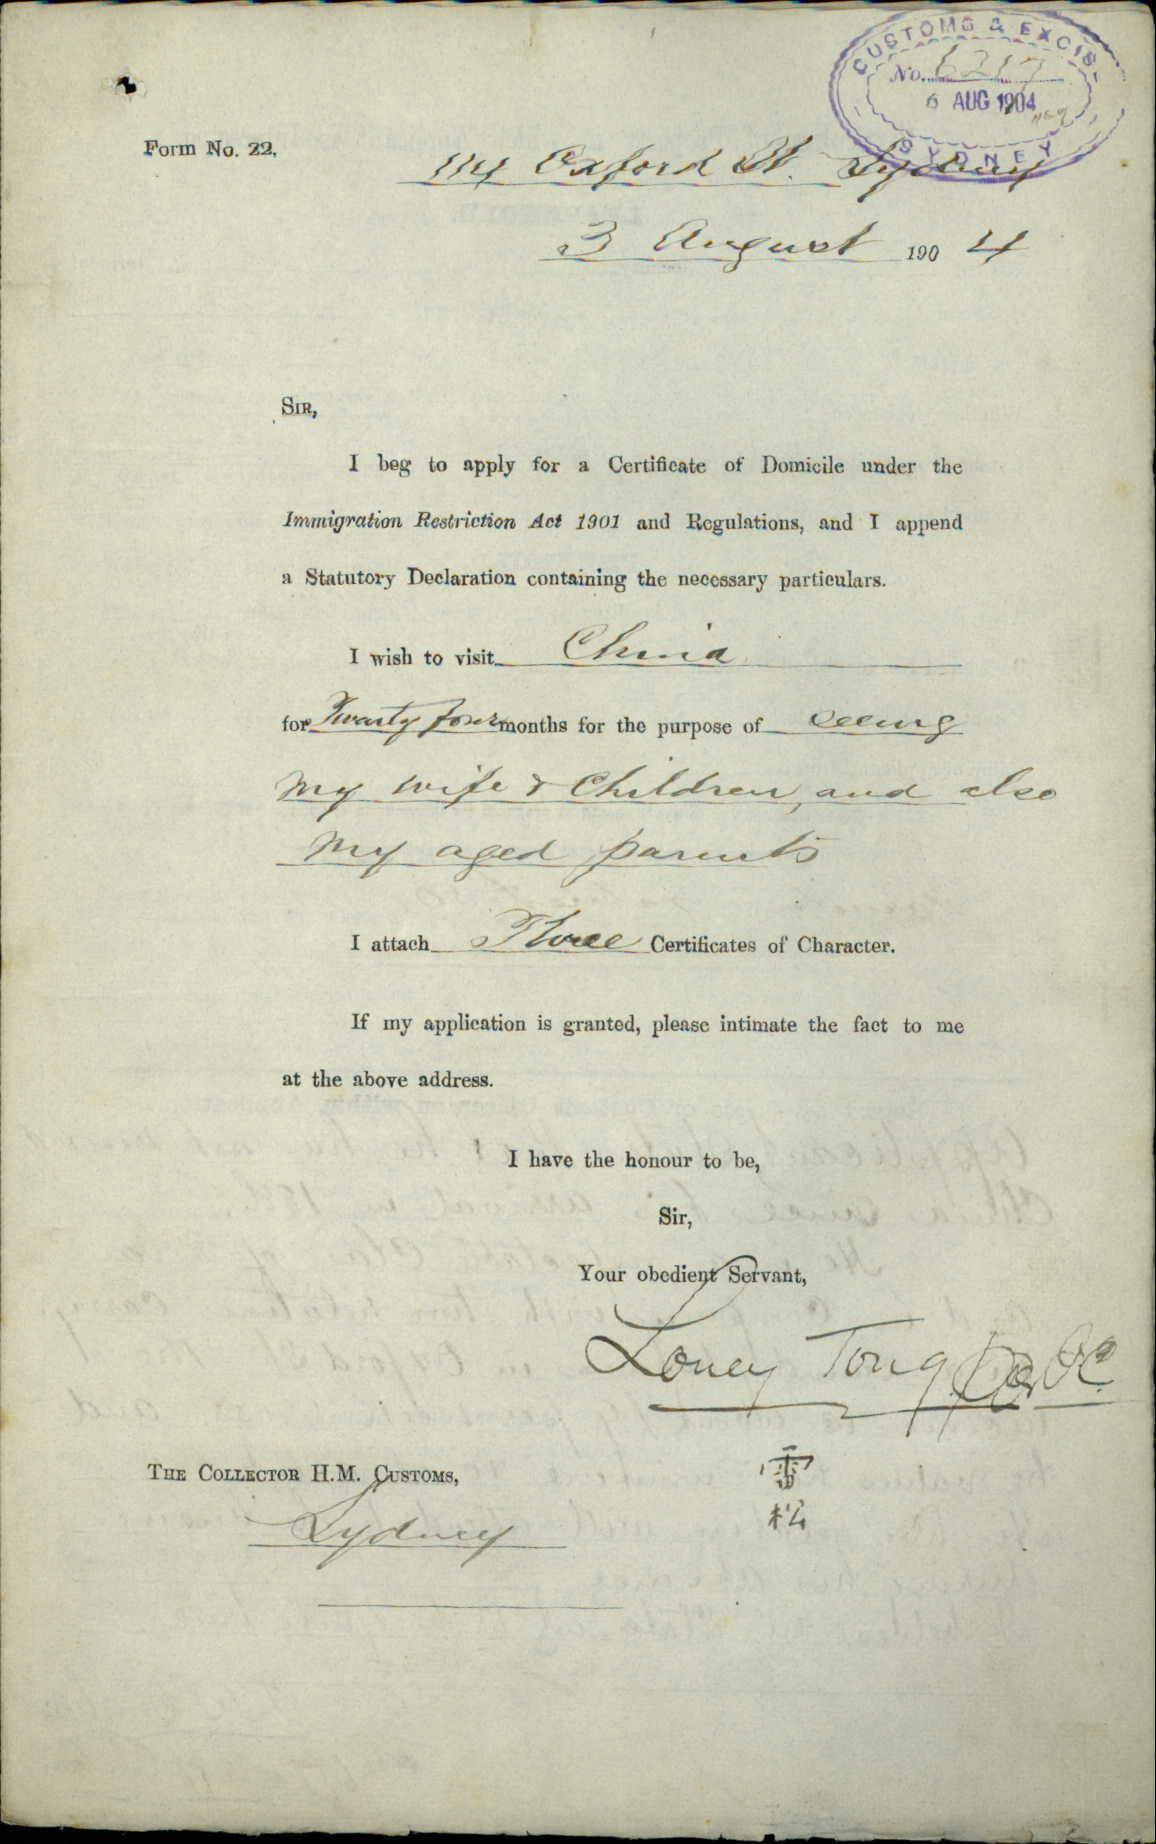 CUSTOMS & EXCISE
No. 6217
6 AUG 1904
SYDNEY
Form No. 22.
114 Oxford St. Sydney
3 August 1904
SIR,
I beg to apply for a Certificate of Domicile under the
Immigration Restriction Act 1901 and Regulations, and I append
a Statutory Declaration containing the necessary particulars.
I wish to visit China
for Twenty four months for the purpose of seeing
my wife & Children, and also
my aged parents
I attach Three Certificates of Character.
If my application is granted, please intimate the fact to me
at the above address.
I have the honour to be,
Sir,
Your obedient Servant,
Loney Tong
THE COLLECTOR H.M. CUSTOMS,
雷
松
Sydney